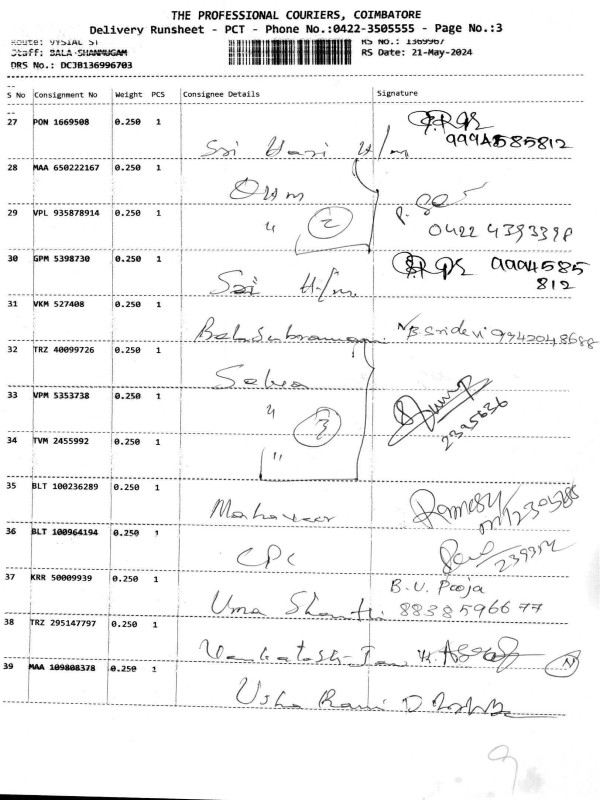 THE PROFESSIONAL COURIERS, COIMBATORE
Delivery Runsheet - PCT - Phone No.:0422-3505555 - Page No.:3
Route: VYSIAL ST RS No.: 1369967
Staff: BALA-SHANMUGAM RS Date: 21-May-2024
DRS No.: DCJB136996703
S No Consignment No Weight PCS Consignee Details Signature
27 PON 1669508 0.250 1 Sri Hari H/m
28 MAA 650222167 0.250 1
29 VPL 935878914 0.250 1 " 2 0422 4393398
30 GPM 5398730 0.250 1 Sri H/m 9994585
812
31 VKM 527408 0.250 1 Balasubramani B. Sridevi 9942048688
32 TRZ 40099726 0.250 1 Selva
33 VPM 5353738 0.250 1 " 3 2395636
34 TVM 2455992 0.250 1 "
35 BLT 100236289 0.250 1 Mahaveer
36 BLT 100964194 0.250 1 CPC
37 KRR 50009939 0.250 1 Uma Shanthi B.U. Pooja
8838596677
38 TRZ 295147797 0.250 1 N
39 MAA 109808378 0.250 1 Usha Rani